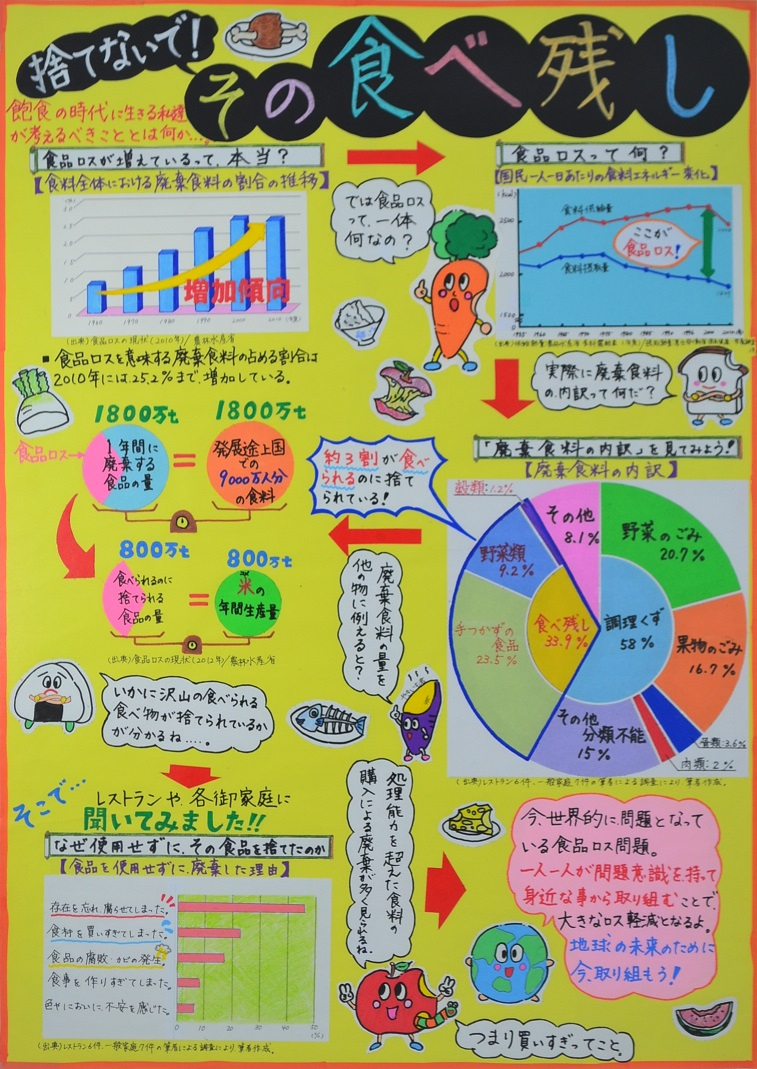 捨てないで!
その食べ残し
飽食の時代に生きる私達
が考えるべきこととは何か…。
食品ロスが増えているって、本当?
【食料全体における廃棄食料の割合の推移】
増加傾向
1960
1970
1980
1990
2000
2010(年度)
(出典)食品ロスの現状(2010年)/農林水産省
■食品ロスを意味する廃棄食料の占める割合は
2010年には25.2%まで、増加している。
では食品ロス
って、一体
何なの?
食品ロスって何?
【国民一人一日あたりの食料エネルギー変化】
(kcal)
2500
2000
1500
食料供給量
食料摂取量
ここが
食品ロス!
実際に廃棄食料
の内訳って何だ?
1800万t
1800万t
食品ロス→
1年間に
廃棄する
食品の量
=
発展途上国
での
9000万人分
の食料
800万t
800万t
食べられるのに
捨てられる
食品の量
=
米の
年間生産量
(出典)食品ロスの現状(2012年)/農林水産省
いかに沢山の食べられる
食べ物が捨てられているか
が分かるね……。
約3割が食べ
られるのに捨て
られている!
廃棄食料の量を
他の物に例えると?
「廃棄食料の内訳」を見てみよう!
【廃棄食料の内訳】
穀類:1.2%
その他
8.1%
野菜のごみ
20.7%
野菜類
9.2%
手つかずの
食品
23.5%
食べ残し
33.9%
調理くず
58%
果物のごみ
16.7%
その他
分類不能
15%
魚類:3.6%
肉類:2%
(出典)レストラン6件、一般家庭7件の筆者による調査により、筆者作成。
そこで…
レストランや、各御家庭に
聞いてみました!!
なぜ使用せず、その食品を捨てたのか
【食品を使用せずに、廃棄した理由】
存在を忘れ、腐らせてしまった。
食材を買いすぎてしまった。
食品の腐敗・カビの発生。
食事を作りすぎてしまった。
色やにおいに不安を感じた。
0
10
20
30
40
50
(%)
(出典)レストラン6件、一般家庭7件の筆者による調査により、筆者作成。
処理能力を超えた食料の
購入による廃棄が多く見られるね。
つまり買いすぎってこと。
今、世界的に問題となって
いる食品ロス問題。
一人一人が問題意識を持って
身近な事から取り組むことで、
大きなロス軽減となるよ。
地球の未来のために
今、取り組もう!